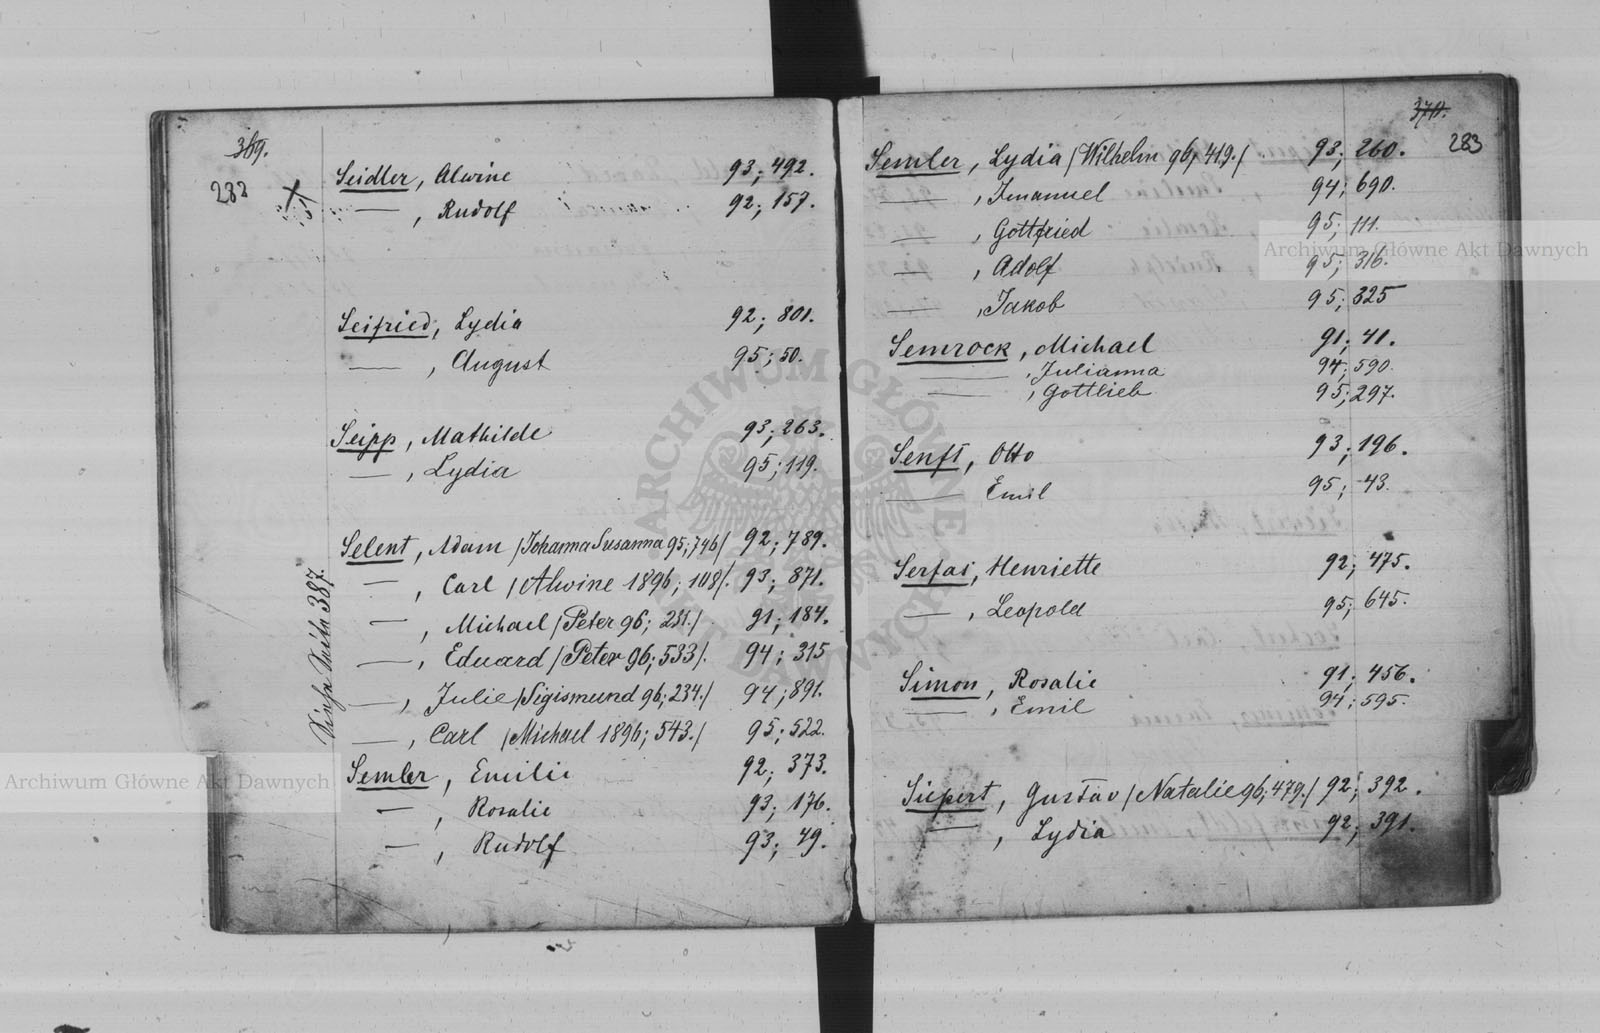 369.
282
Seidler, Alwine 93; 492.
— , Rudolf 92; 157.
Seifried, Lydia 92; 801.
— , August 95; 50.
Seipp, Mathilde 93; 263.
— , Lydia 95; 119.
Selent, Adam /Johanna Susanna 95; 746/ 92; 789.
— , Carl /Alwine 1896; 108/. 93; 871.
— , Michael /Peter 96; 251./ 91; 184.
— , Eduard /Peter 96; 533/. 94; 315
— , Julie /Sigismund 96; 234./ 94; 891.
— , Carl /Michael 1896; 543./ 95; 522.
Semler, Emilie 92; 373.
— , Rosalie 93; 176.
— , Rudolf 93; 49.
387.
370.
283
Semler, Lydia /Wilhelm 96, 419./ 93; 260.
— , Imanuel 94; 690.
— , Gottfried 95; 111.
— , Adolf 95; 316.
— , Jakob 95; 325
Semrock, Michael 91; 41.
— , Julianna 94; 590.
— , Gottlieb 95; 297.
Senft, Otto 93; 196.
— Emil 95; 43.
Serfas, Henriette 92; 475.
— , Leopold 95; 645.
Simon, Rosalie 91; 456.
— , Emil 94; 595.
Siepert, Gustav /Natalie 96; 479./ 92; 392.
— , Lydia 92; 391.
Archiwum Główne Akt Dawnych
Archiwum Główne Akt Dawnych
ARCHIWUM GŁÓWNE AKT DAWNYCH